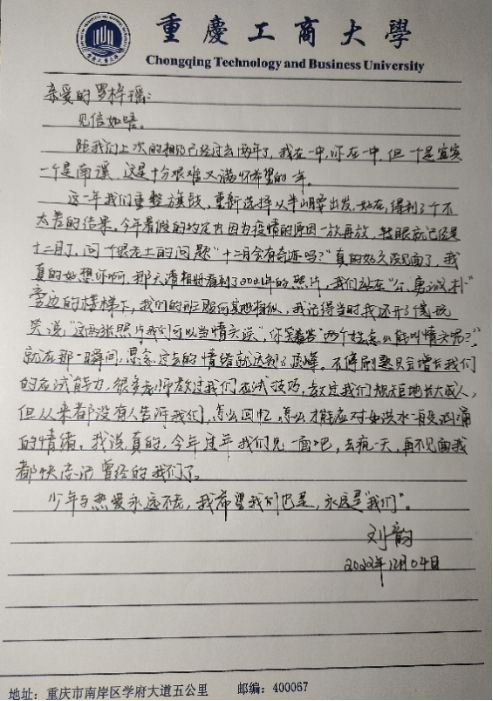 重慶工商大學
Chongqing Technology and Business University
亲爱的罗梓瑶:
见信如晤。
距我们上次的相见已经过去两年了,我在一中,你在一中,但一个是宜宾
一个是南溪,这是十分艰难又满怀希望的一年。
这一年我们重整旗鼓,重新选择从半山腰出发,好在,得到了个不
太差的结果,今年暑假的约定也因为疫情的原因一放再放,转眼就已经是
十二月了,问一个很老土的问题“十二月会有奇迹吗?”真的好久没见面了,我
真的好想你啊,那天清相册看到了2021年的照片,我们站在“公、勇、诚、朴”
旁边的楼梯下,我记得当时我还开了个玩
笑说“这两张照片我们可以当情头误”,你笑着答“两个姓袁的能叫情头吗?”
就在那一瞬间,思念过去的情绪就达到了顶峰。不停刷题只会增长我们
的应试能力,很多老师教过我们应试技巧,教过我们如何地长大成人,
但从来都没有人告诉我们,怎么回忆,怎么才能应对如洪水一般汹涌
的情绪。我说真的,今年过年我们见一面吧,去疯一天,再不见面我
都快忘记曾经的我们了。
少年与热爱永远不老,我希望我们也是,永远是“我们”。
刘韵
2022年12月04日
地址:重庆市南岸区学府大道五公里 邮编:400067